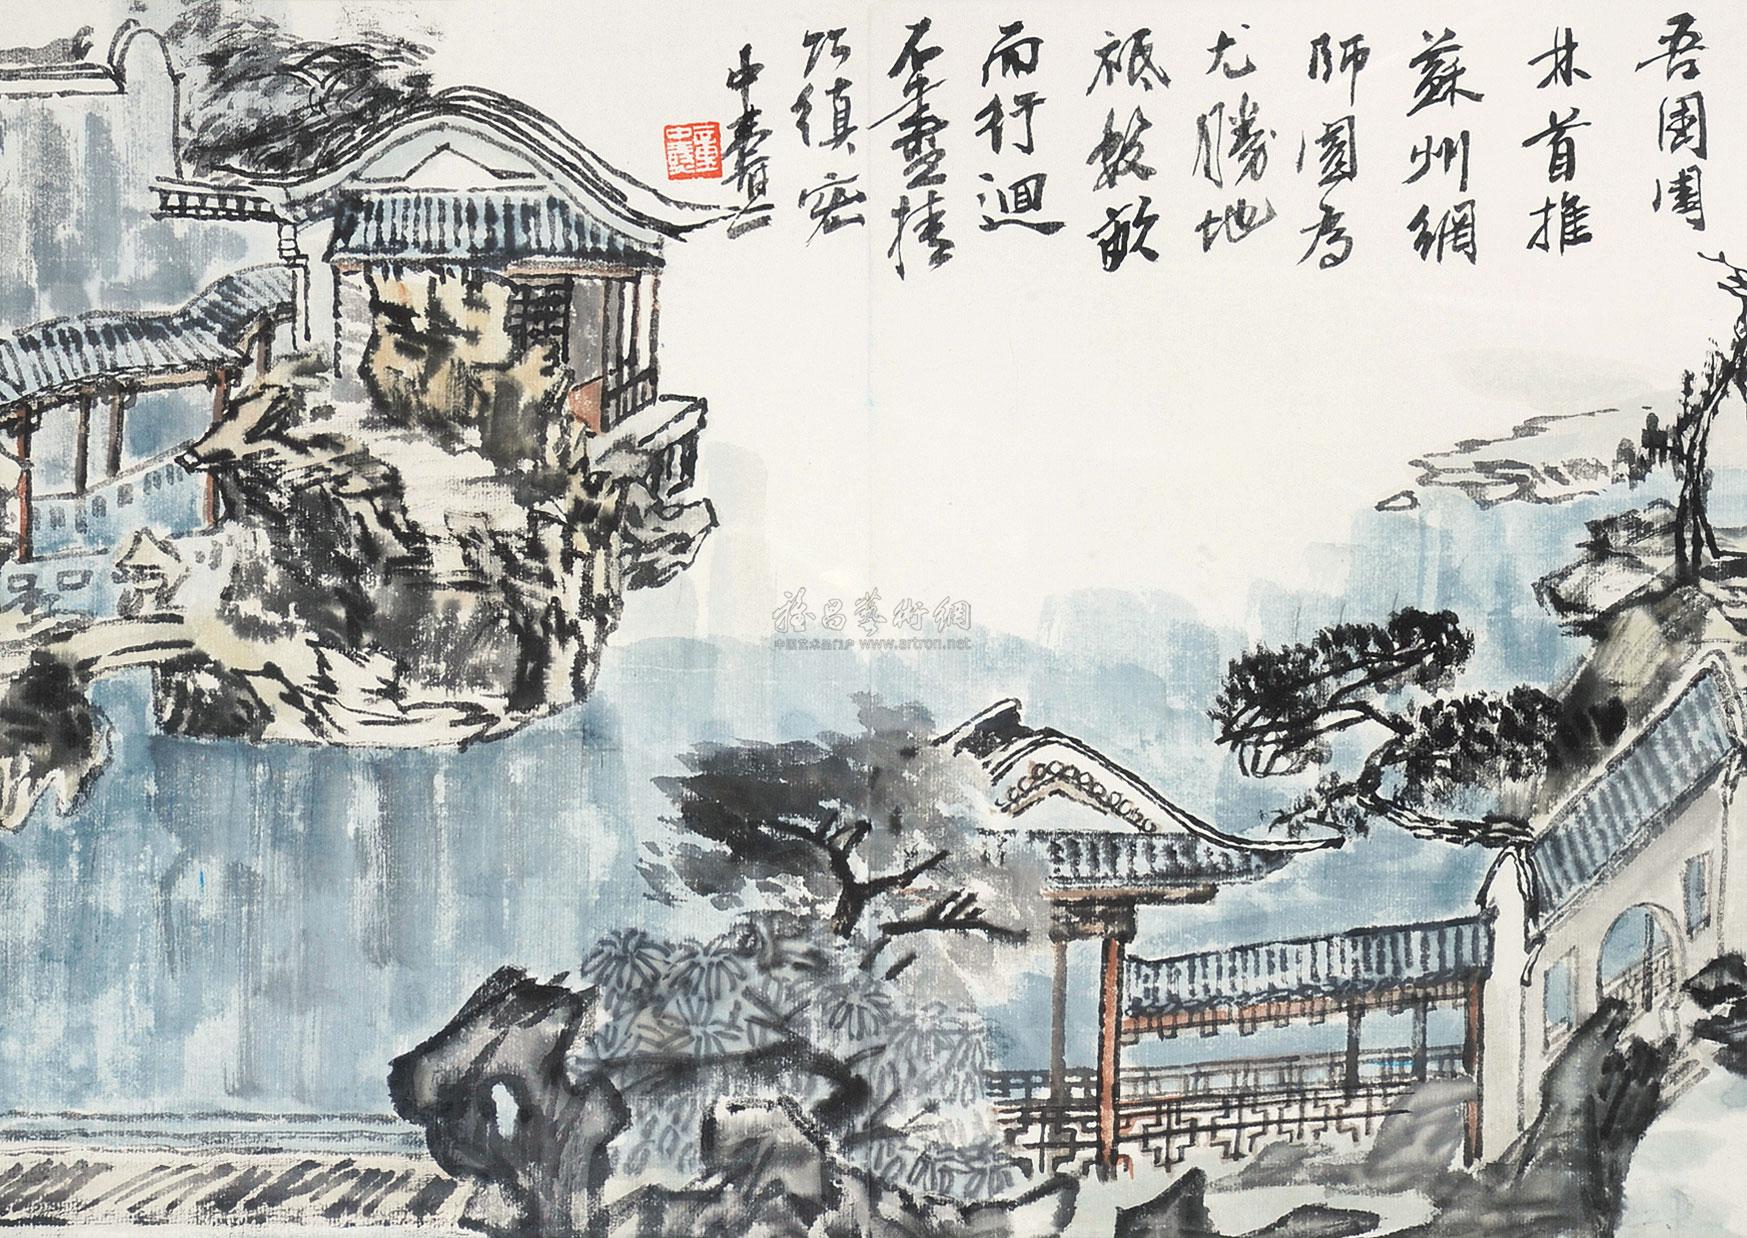 吾國園
林首推
蘇州網
師園為
尤勝地
祗數畝
而行迴
石
巧縝密
中燾
雅昌藝術網
中国艺术品门户 www.artron.net